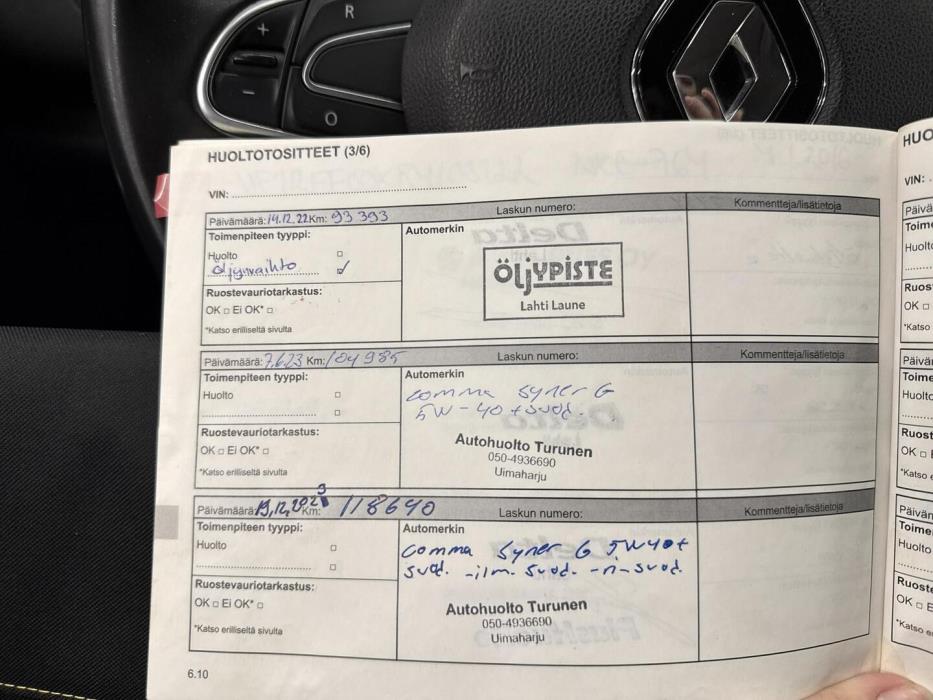 R
O
HUOLTOTOSITTEET (3/6)
VIN:
Päivämäärä: 14.12.22 Km: 93 393
Laskun numero:
Kommentteja/lisätietoja
Toimenpiteen tyyppi:
Huolto
Öljynvaihto
Ruostevauriotarkastus:
OK Ei OK*
*Katso erilliseltä sivulta
Automerkin
ÖLJYPISTE
Lahti Laune
Päivämäärä: 7.6.23 Km: 104 985
Laskun numero:
Kommentteja/lisätietoja
Toimenpiteen tyyppi:
Huolto
Ruostevauriotarkastus:
OK Ei OK*
*Katso erilliseltä sivulta
Automerkin
comma syner G
5W-40 + suod.
Autohuolto Turunen
050-4936690
Uimaharju
Päivämäärä: 19.12.2023 Km: 118640
Laskun numero:
Kommentteja/lisätietoja
Toimenpiteen tyyppi:
Huolto
Ruostevauriotarkastus:
OK Ei OK*
*Katso erilliseltä sivulta
Automerkin
comma syner G 5W40+
suod. -ilm. suod. -n-suod.
Autohuolto Turunen
050-4936690
Uimaharju
6.10
VIN: